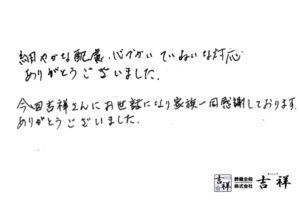 細やかな配慮、心づかい ていねいな対応
ありがとうございました。
今回吉祥さんにお世話になり家族一同感謝しております。
ありがとうございました。
吉祥
葬儀全般
株式会社
吉祥